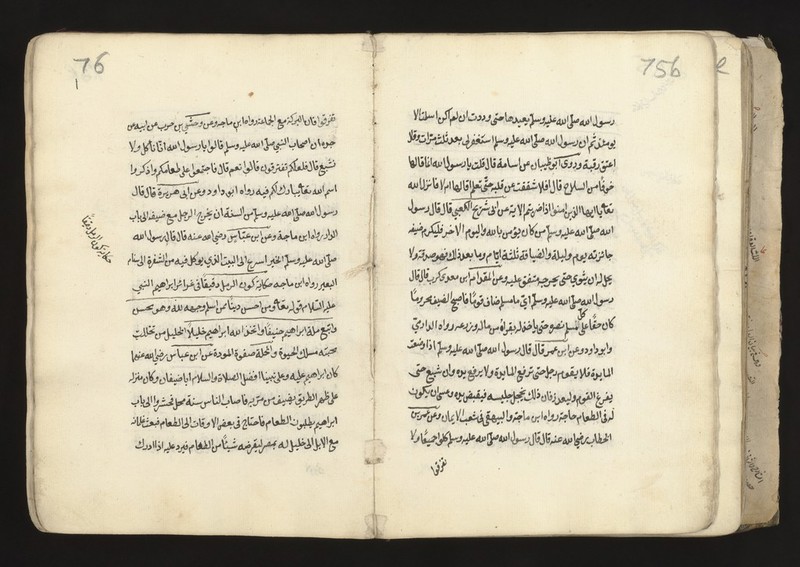 75b
رسول الله صلى الله عليه وسلم يعيدها حتى وددت ان لم اكن اسلمت الا
يومئذ ثم ان رسول الله صلى الله عليه وسلم استغفر لي بعد ثلث مرات وقال
اعتق رقبة وروى ابو ظبيان عن اسامة قال قلت يا رسول الله انما قالها
خوفا من السلاح قال افلا شققت عن قلبه حتى تعلم اقالها ام لا فانزل الله
تعالى يا ايها الذين امنوا اذا ضربتم الاية عن ابي شريح الكعبي قال قال رسول
الله صلى الله عليه وسلم من كان يؤمن بالله واليوم الاخر فليكرم ضيفه
جائزته يوم وليلة والضيافة ثلثة ايام وما بعد ذلك فهو صدقة ولا
يحل له ان يثوي حتى يحرجه متفق عليه وعن المقدام ابن معدي كرب قال قال
رسول الله صلى الله عليه وسلم ايما مسلم ضاف قوما فاصبح الضيف محروما
كان حقا على كل مسلم نصره حتى ياخذ له بقراه من ماله وزرعه رواه الدارمي
وابو داود وعن ابن عمر قال قال رسول الله صلى الله عليه وسلم اذا وضعت
المايدة فلا يقوم رجل حتى ترفع المايدة ولا يرفع يده وان شبع حتى
يفرغ القوم وليعذر فان ذلك يخجل جليسه فيقبض يده وعسى ان يكون
له في الطعام حاجة رواه ابن ماجة والبيهقي في شعب الايمان وعن عمر بن
الخطاب رضي الله عنه قال قال رسول الله صلى الله عليه وسلم كلوا جميعا ولا
تفرقوا
76
تفرقوا فان البركة مع الجماعة رواه ابن ماجه وعن وحشي بن حرب عن ابيه عن
جده ان اصحاب النبي صلى الله عليه وسلم قالوا يا رسول الله انا ناكل ولا
نشبع قال فلعلكم تفترقون قالوا نعم قال فاجتمعوا على طعامكم واذكروا
اسم الله تعالى يبارك لكم فيه رواه ابو داود وعن ابي هريرة قال قال
رسول الله صلى الله عليه وسلم من السنة ان يخرج الرجل مع ضيفه الى باب
الدار رواه ابن ماجة وعن ابن عباس رضي الله عنه قال قال رسول الله
صلى الله عليه وسلم الخير اسرع الى البيت الذي يوكل فيه من الشفرة الى سنام
البعير رواه ابن ماجه حكاية كون الرمل دقيقا في غرائر ابراهيم النبي
عليه السلام قوله تعالى ومن احسن دينا ممن اسلم وجهه لله وهو محسن
واتبع ملة ابراهيم حنيفا واتخذ الله ابراهيم خليلا الخليل من تخللت
محبته مسلك الحيوة والخلة صفوة المودة عن ابن عباس رضي الله عنهما
كان ابراهيم عليه وعلى نبينا افضل الصلاة والسلام ابا ضيفان وكان منزله
على ظهر الطريق يضيف من مر به فاصاب الناس سنة محل فحشروا الى باب
ابراهيم يطلبون الطعام فاحتاج في بعض الاوقات الى الطعام فبعث غلمانه
مع الابل الى خليل له بمصر ليقرضه شيئا من الطعام فيرد عليه اذا ادرك
حكاية كون الرمل دقيقا